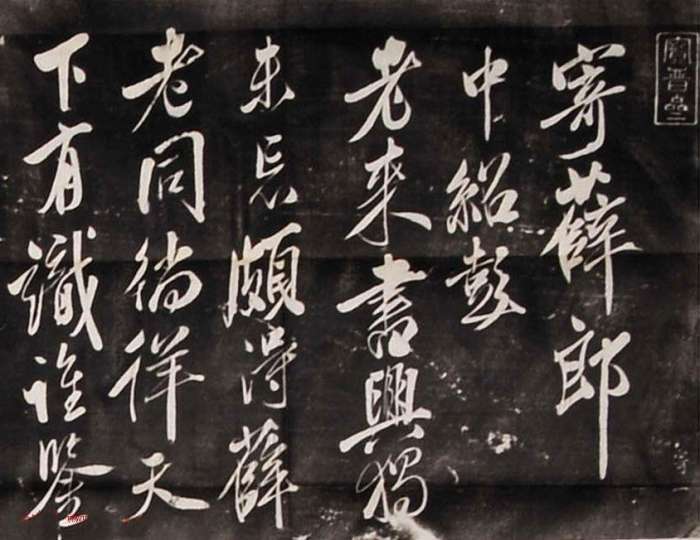 寶晉齋
寄薛郎
中紹彭
老來書興獨
未忘頗得薛
老同徜徉天
下有識誰鑒